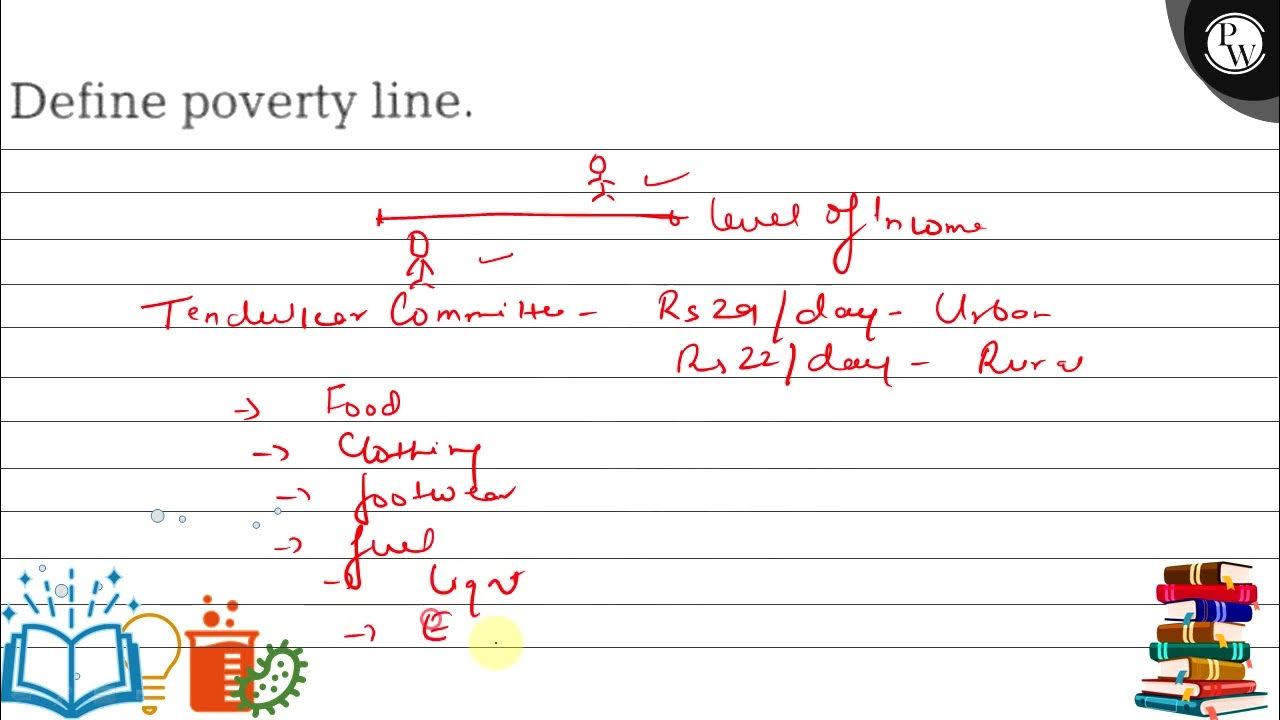 PW
Define poverty line.
level of Income
Tendulkar Committee - Rs 29/day - Urban
Rs 22/day - Rural
→ Food
→ Clothing
→ footwear
→ fuel
→ light
→ E